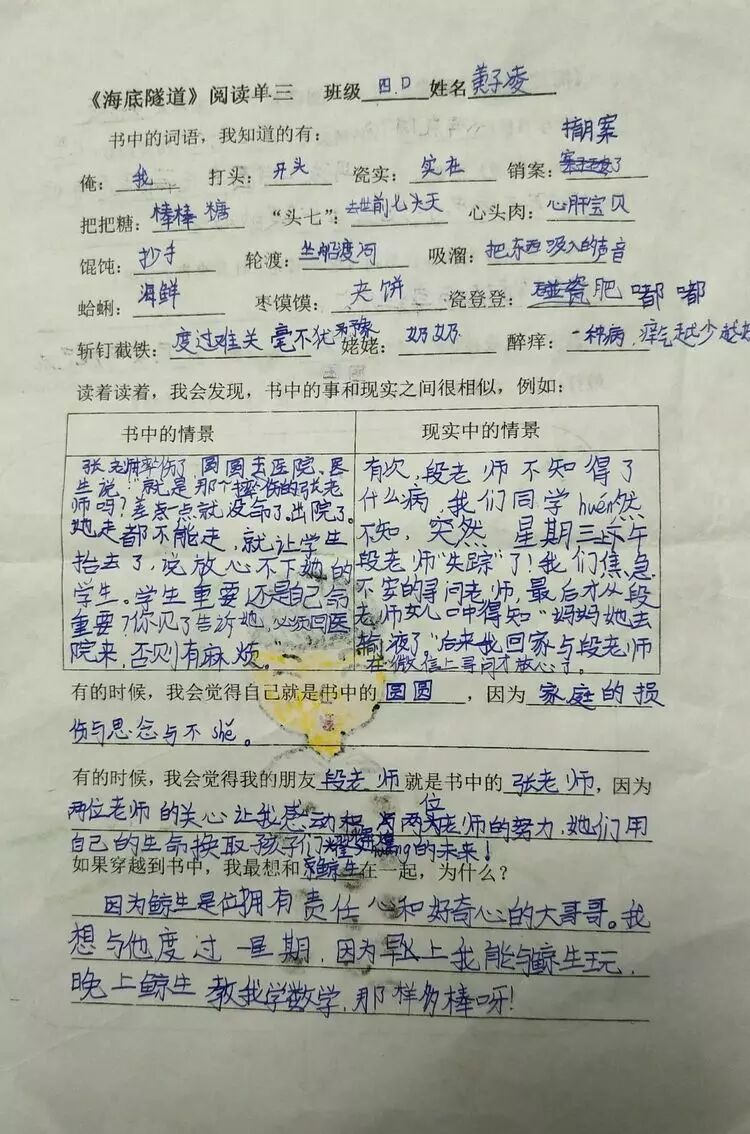 《海底隧道》阅读单三 班级 四.D 姓名 子凌
书中的词语，我知道的有：
俺： 我 打头： 开头 瓷实： 实在 销案：
把把糖： 棒棒糖 “头七”： 去世前七天 心头肉： 心肝宝贝
馄饨： 抄手 轮渡： 坐船渡河 吸溜： 把东西吸入的声音
蛤蜊： 海鲜 枣馍馍： 夹饼 瓷登登： 肥嘟嘟
斩钉截铁： 度过难关 毫不犹豫 姥姥： 奶奶 醉痒： 一种病，痒 越少越
读着读着，我会发现，书中的事和现实之间很相似，例如：
书中的情景 现实中的情景
张老师摔伤了，圆圆去医院，医
生说：“就是那个摔伤的张老
师吗？差点一点就没命了。出院了。
她走都不能走，就让学生
抬去了，说放心不下她的
学生。学生重要还是自己命
重要？你见了告诉她，必须回医
院来，否则有麻烦。”
有次，段老师不知得了
什么病，我们同学huén然
不知，突然，星期三上午
段老师“失踪”了！我们焦急
不安的寻问老师，最后才从段
老师女儿口中得知“妈妈她去
输液了。”后来我回家与段老师
在微信上寻问才放心了。
有的时候，我会觉得自己就是书中的 圆圆 ，因为 家庭的损
伤与思念与不shě。
有的时候，我会觉得我的朋友 段老师 就是书中的 张老师，因为
两位老师的关心让我感动和 与两位老师的努力，她们用
自己的生命换取孩子们 的未来！
如果穿越到书中，我最想和 鲸生 在一起，为什么？
因为鲸生是位拥有责任心和好奇心的大哥哥。我
想与他度过一星期，因为早上我能与鲸生玩，
晚上鲸生教我学数学，那样多棒呀！